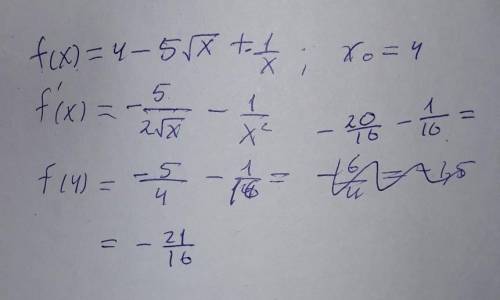 f(x) = 4 - 5√x + 1/x ; x₀ = 4
f'(x) = -5/(2√x) - 1/x²
- 20/16 - 1/16 =
f(4) = -5/4 - 1/16 =
= - 21/16